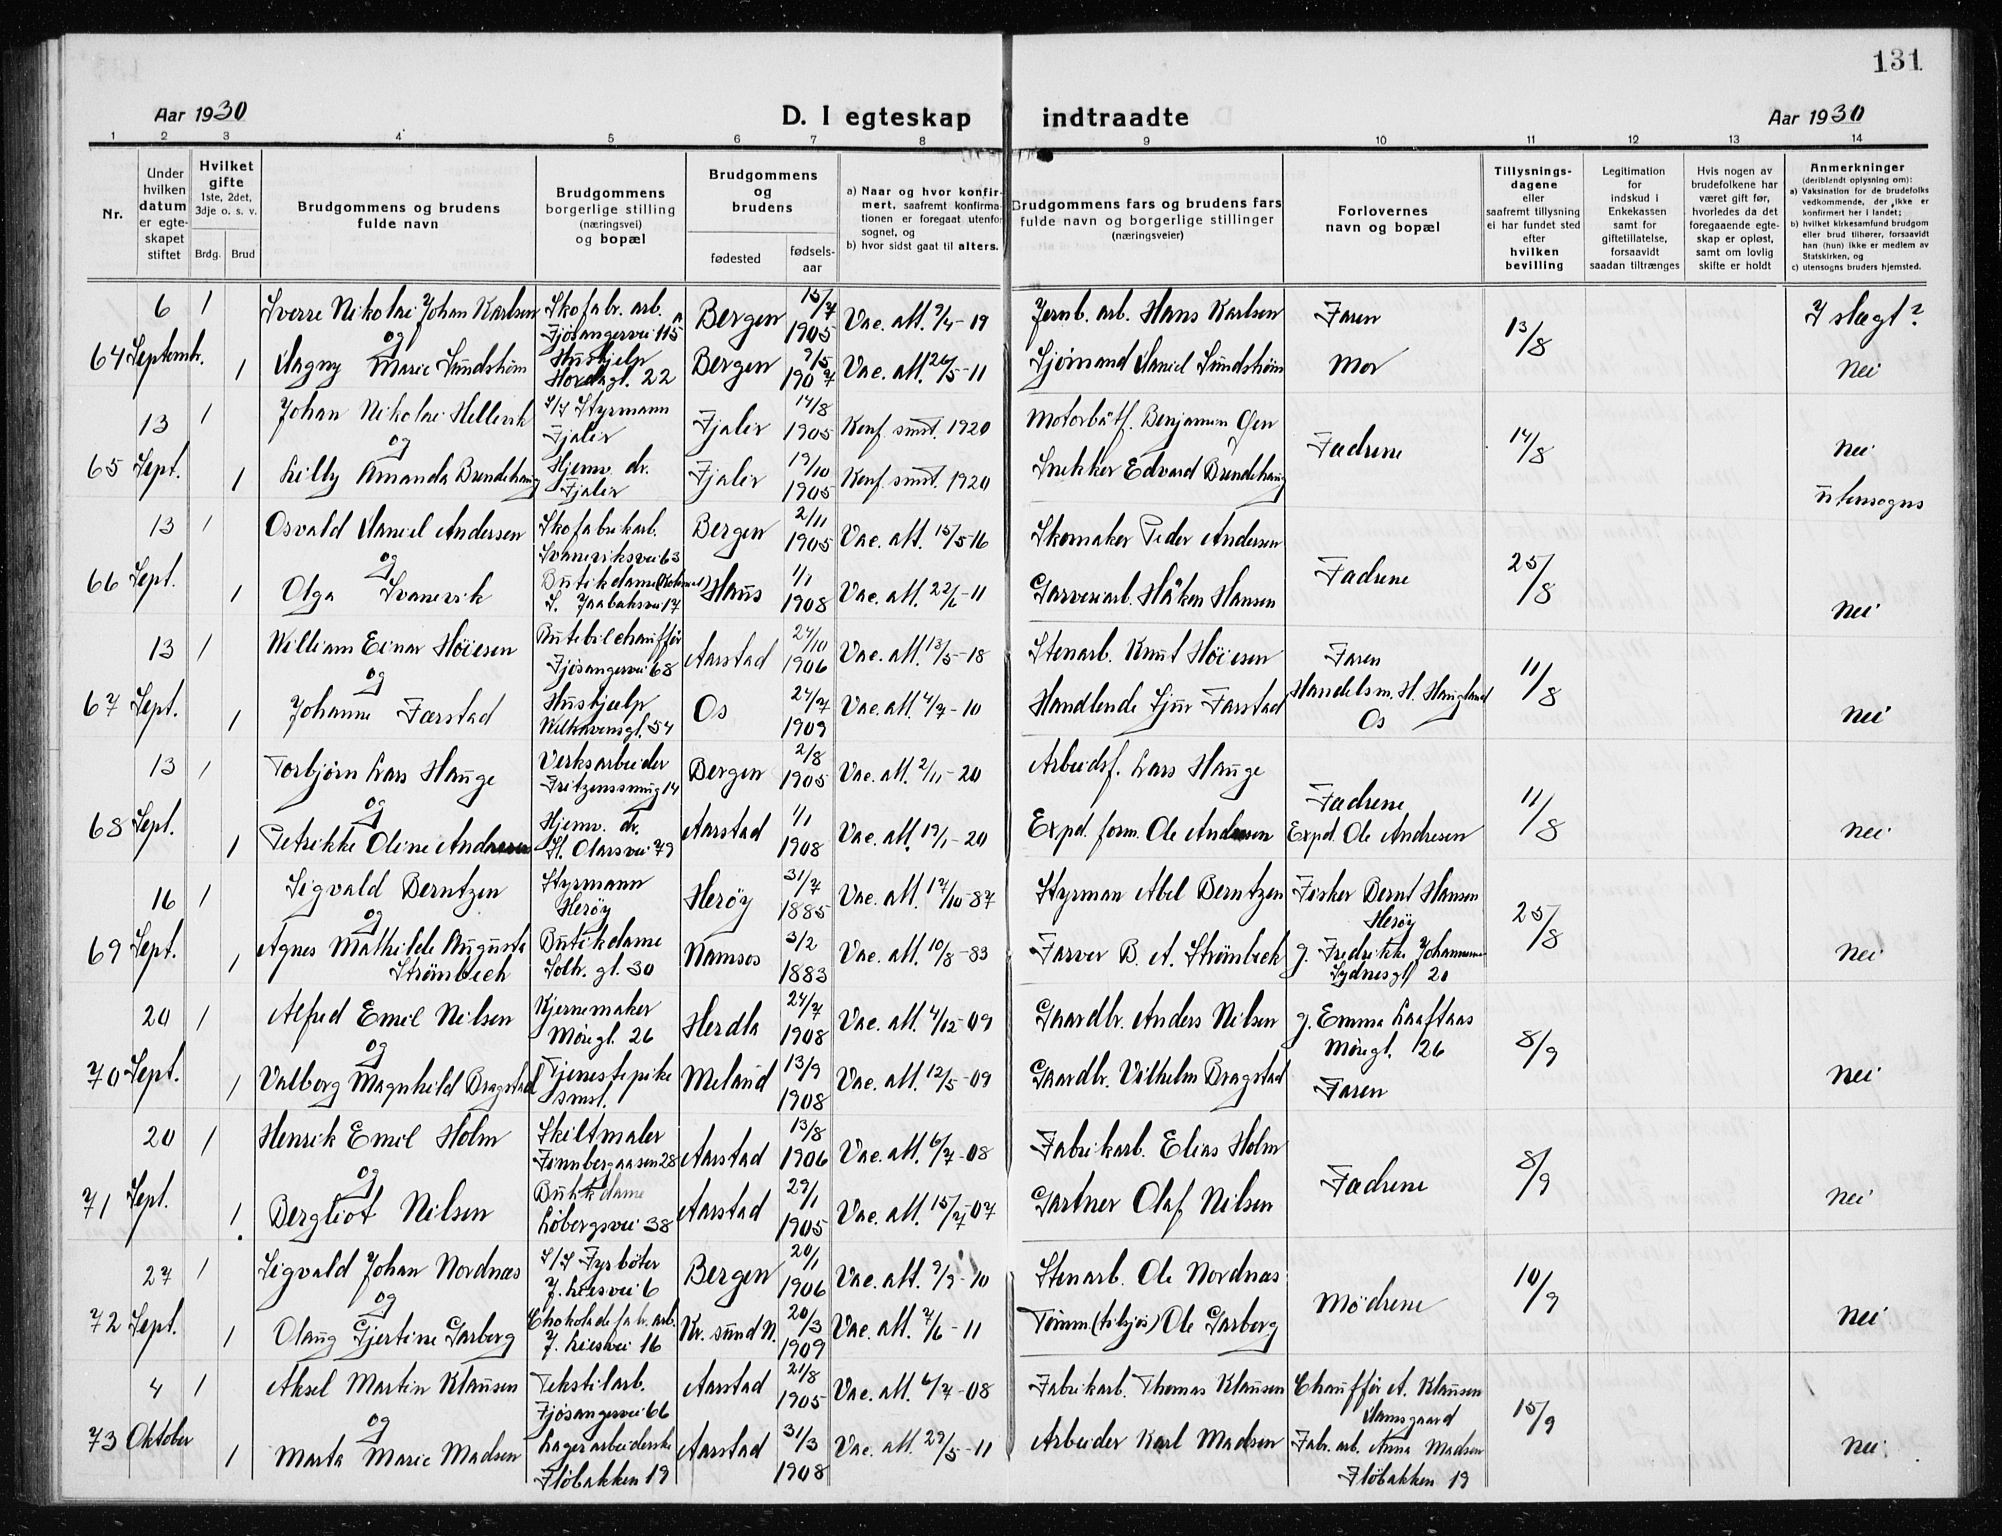 131
Aar 1930
D. I egteskap indtraadte
Aar 1930
1 2 3 4 5 6 7 8 9 10 11 12 13 14
Nr.
Under hvilken datum er egteskapet stiftet
Hvilket gifte 1ste, 2det, 3dje o. s. v.
Brdg. Brud
Brudgommens og brudens fulde navn
Brudgommens borgerlige stilling (næringsvei) og bopæl
Brudgommens og brudens
fødested
fødsels-aar
a) Naar og hvor konfirmert, saafremt konfirmationen er foregaat utenfor sognet, og
b) hvor sidst gaat til alters.
Brudgommens fars og brudens fars fulde navn og borgerlige stillinger (næringsveier)
Forlovernes navn og bopæl
Tillysningsdagene eller saafremt tillysning ei har fundet sted efter hvilken bevilling
Legitimation for indskud i Enkekassen samt for giftetillatelse, forsaavidt saadan tiltrænges
Hvis nogen av brudefolkene har været gift før, hvorledes da det foregaaende egteskap er opløst, samt om lovlig skifte er holdt
Anmerkninger (deriblandt oplysning om):
a) Vaksination for de brudefolks vedkommende, der ikke er konfirmert her i landet;
b) hvilket kirkesamfund brudgom eller brud tilhører, forsaavidt han (hun) ikke er medlem av Statskirken, og
c) utensogns bruders hjemsted.
64 6 Septembr. 1 Sverre Nikolai Johan Karlsen Skofabr. arb. Fjøsangervei 115 A Bergen 15/7 1905 Vac. att. 9/4-19 Jernb. arb. Hans Karlsen Faren 13/8 I slegt?
og
1 Dagny Marie Sundstrøm Hushjelp Hordagt. 22 Bergen 9/5 1907 Vac. att. 26/5-11 Sjømand Daniel Sundstrøm Mor Nei
65 13 Sept. 1 Johan Nikolai Hellevik S/S Styrmann Fjaler Fjaler 14/8 1905 Konf. smst. 1920 Motorbåtf. Benjamin Fadrene 14/8 Nei
og
1 Lilly Amanda Brendehaug Hjemv. dr. Fjaler Fjaler 19/10 1905 Konf. smst. 1920 Snekker Edvard Brendehaug utensogns
66 13 Sept. 1 Osvald Daniel Andersen Skofabrikarb. Svaneviksvei 63 Bergen 2/11 1905 Vac. att. 15/5-16 Skomaker Peder Andersen Fadrene 25/8
og
1 Olga Svanevik Butikdame S. Jaabæksvei 17 Haus 1/1 1908 Vac. att. 22/6-11 Garveriarb. Håkon Hansen Nei
67 13 Sept. 1 William Einar Høiesen Rutebilchauffør Fjøsangervei 68 Aarstad 24/10 1906 Vac. att. 13/5-18 Stenarb. Knut Høiesen Faren 11/8
og
1 Johanne Farstad Hushjelp 54 Os 24/7 1909 Vac. att. 4/7-10 Handlende Sjur Farstad Handelsm. H. Haugland Os Nei
68 13 Sept. 1 Torbjørn Lars Hauge Verksarbeider Fritzenssmug 14 Bergen 2/8 1905 Vac. att. 2/11-20 Arbeidsf. Lars Hauge Fadrene 11/8
og
1 Petrikke Oline Andresen Hjemv. dr. St. Olavsvei 79 Aarstad 1/1 1908 Vac. att. 19/1-20 Exped. form. Ole Andresen Expd. Ole Andresen Nei
69 16 Sept. 1 Sigvald Berntzen Styrmann Herøy Herøy 31/7 1885 Vac. att. 17/10-87 Styrman Abel Berntzen Fisker Bernt Hansen Herøy 25/8
og
1 Agnes Mathilde Augusta Strømbeck Butikdame Solh. gt. 30 Namsos 3/2 1883 Vac. att. 10/8-83 Farver B. A. Strømbeck g. Fredrikke Johannesen Sydnesgt 20 Nei
70 20 Sept. 1 Alfred Emil Nilsen Kjernemaker Møregt. 26 Herdla 24/7 1908 Vac. att. 4/12-09 Gaardbr. Anders Nilsen g. Emma Laaftaas Møregt. 126 8/9
og
1 Valborg Magnhild Bragstad Tjenestepike smst. Meland 13/9 1908 Vac. att. 12/5-09 Gaardbr. Vilhelm Bragstad Faren Nei
71 20 Sept. 1 Henrik Emil Holm Skiltmaler Finnbergaasen 28 Aarstad 13/8 1906 Vac. att. 6/7-08 Fabrikarb. Elias Holm Fadrene 8/9
og
1 Bergliot Nilsen Butikdame Løbergsvei 38 Aarstad 29/1 1905 Vac. att. 15/7-07 Gartner Olaf Nilsen Nei
72 27 Sept. 1 Sigvald Johan Nordnæs S/S Fyrbøter J. Liesvei 6 Bergen 20/1 1906 Vac. att. 9/9-10 Stenarb. Ole Nordnæs Mødrene 10/9
og
1 Olaug Gjertine Garberg Chokoladefabr. arb. J. Liesvei 16 Kr. sund N. 20/3 1909 Vac. att. 7/6-11 Tømm. (tilsjøs) Ole Garberg Nei
73 4 Oktober 1 Aksel Martin Klausen Tekstilarb. Fjøsangervei 66 Aarstad 21/8 1905 Vac. att. 6/7-08 Fabrikarb. Thomas Klausen Chauffør A. Klausen Damsgaard 15/9
og
1 Marta Marie Madsen Lagerarbeiderske Fløbakken 19 Aarstad 31/3 1908 Vac. att. 29/5-11 Arbeider Karl Madsen Fabr. arb. Anna Madsen Fløbakken 19 Nei